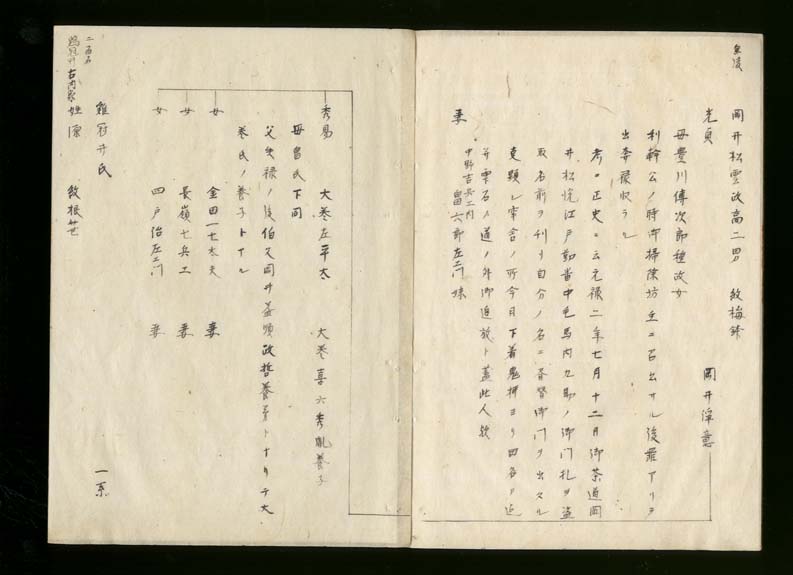 岡井松雲政高二男 紋梅鉢 岡井淳意
光貞
母豊川傳次郎種政女
利幹公ノ時御掃除坊主ニ召出サル後罪アリテ
出奔禄収ラル
考ニ正史ニ云元禄二年七月十二日御茶道岡
井松悦江戸勤番中毛馬内九助ノ御門札ヲ盗
取名前ヲ利リ自分ノ名ニ書替御門ヲ出タル
変顕レ牢舎ノ所今日下着鬼柳ヨリ四名ヲ追
并雫石ノ道ノ外御追放ト蓋此人歟
妻 中野吉兵エ内
留六郎左エ門妹
秀易 大巻左平太 大巻喜六秀胤養子
母畠氏下同
父失禄ノ後伯父岡井益順政哲養弟トナリテ大
巻氏ノ養子トナル
女 金田一七太夫 妻
女 長嶺七兵エ 妻
女 四戸治左エ門 妻
鶏冠井氏 一系
二百石
鶏冠井古内蔵
姓源 紋根笹